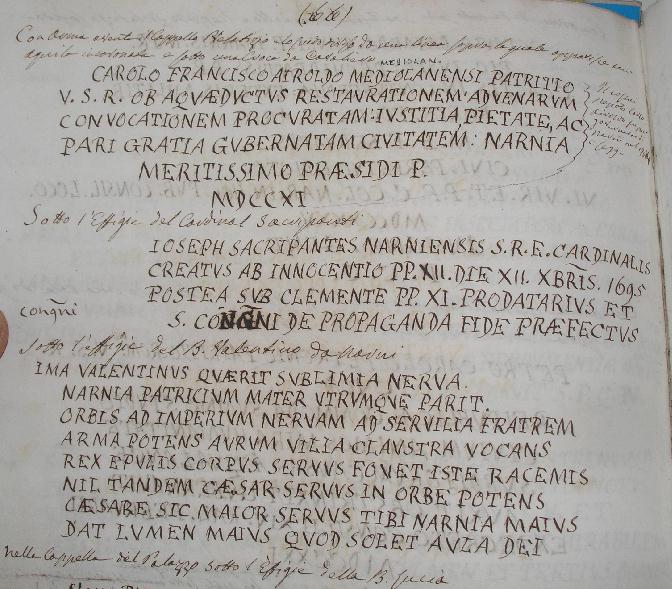 (66)
Con
aquila incoronata e sotto una Croce da Cavaliere
MEDIOLAN.
CAROLO FRANCISCO AIROLDO MEDIOLANENSI PATRITIO
V. S. R. OB AQVÆDVCTVS RESTAVRATIONEM ADVENARVM
CONVOCATIONEM PROCVRATAM: IVSTITIA, PIETATE, AC
PARI GRATIA GVBERNATAM CIVITATEM: NARNIA
MERITISSIMO PRÆSIDI P.
MDCCXI
Sotto l'Effigie del Cardinal Sacripanti
IOSEPH SACRIPANTES NARNIENSIS S.R.E. CARDINALIS
CREATVS AB INNOCENTIO PP. XII. DIE XII. XBRĪS. 1695
POSTEA SVB CLEMENTE PP. XI. PRODATARIVS ET
congñi
S. CONGNI DE PROPAGANDA FIDE PRÆFECTVS
Sotto l'effigie del B. Valentino da Narni
IMA VALENTINVS QVÆRIT SVBLIMIA NERVA.
NARNIA PATRICIVM MATER VTRVMQVE PARIT.
ORBIS AD IMPERIVM NERVAM AD SERVILIA FRATREM
ARMA POTENS AVRVM VILIA CLAVSTRA VOCANS
REX EPVLIS CORPVS SERVVS FOVET ISTE RACEMIS
NIL TANDEM CÆSAR SERVVS IN ORBE POTENS
CÆSARE SIC MAIOR SERVVS TIBI NARNIA MAIVS
DAT LVMEN MAIVS QVOD SOLET AVLA DEI
nella Cappella del Palazzo sotto l'Effigie della B. Lucia